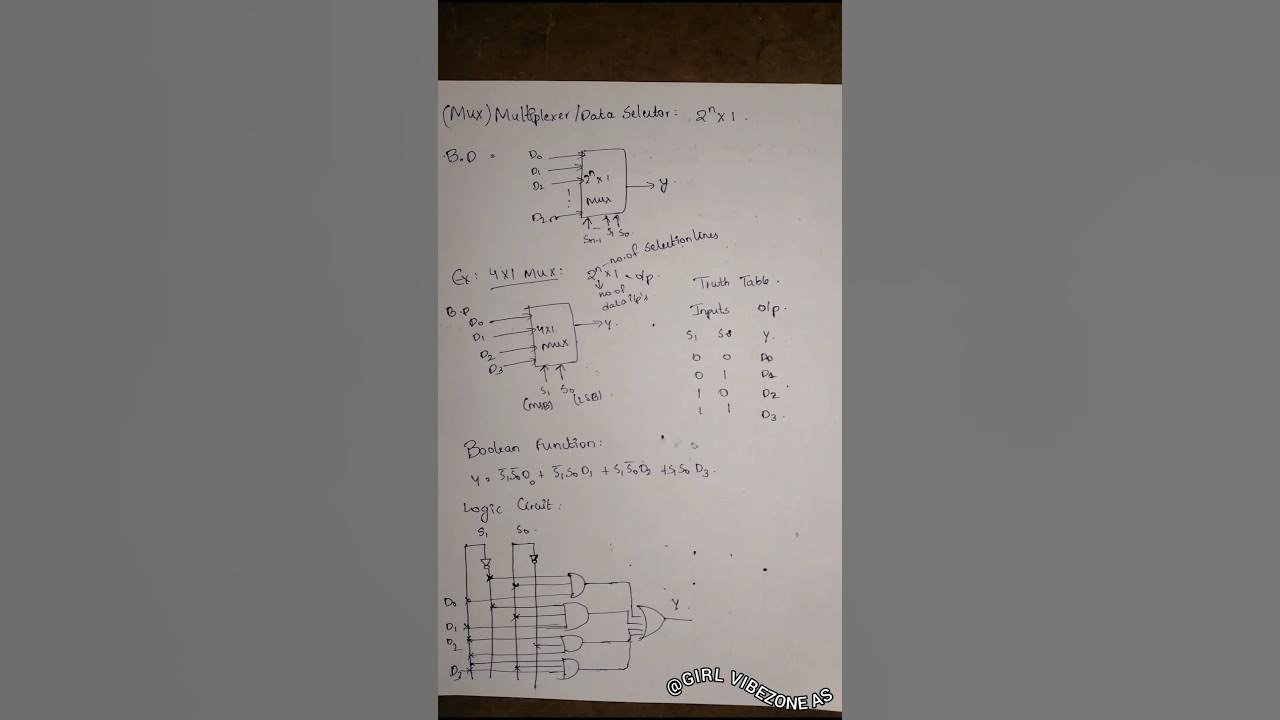 (Mux) Multiplexer/Data Selector: 2ⁿ×1.
B.D =
D₀
D₁
D₂
2ⁿ×1
Mux
Y
Sₙ₋₁ S₁ S₀
no. of selection lines
Ex: 4×1 Mux: 2ⁿ×1 o/p.
no. of
data i/p's
B.D
D₀
D₁
D₂
D₃
4×1
Mux
Y.
S₁ S₀
(MSB) (LSB)
Truth Table.
Inputs o/p.
S₁ S₀ Y.
0 0 D₀
0 1 D₁
1 0 D₂
1 1 D₃.
Boolean Function:
Y = S̅₁S̅₀D₀ + S̅₁S₀D₁ + S₁S̅₀D₂ + S₁S₀D₃.
Logic Circuit:
S₁ S₀.
D₀
D₁
D₂
D₃
Y
@GIRL VIBEZONE AS